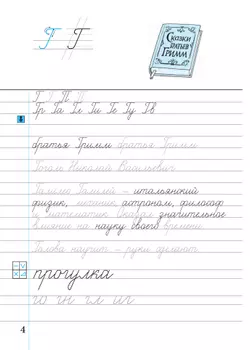 Г Г
Сказки братьев Гримм
Г Г П П
Гр Га Гл Ги Ге Гу Гв
братья Гримм братья Гримм
Гоголь Николай Васильевич
Галилео Галилей — итальянский
физик, механик, астроном, философ
и математик. Оказал значительное
влияние на науку своего времени.
Голова научит — руки сделают.
прогулка
го гн гл иг
4